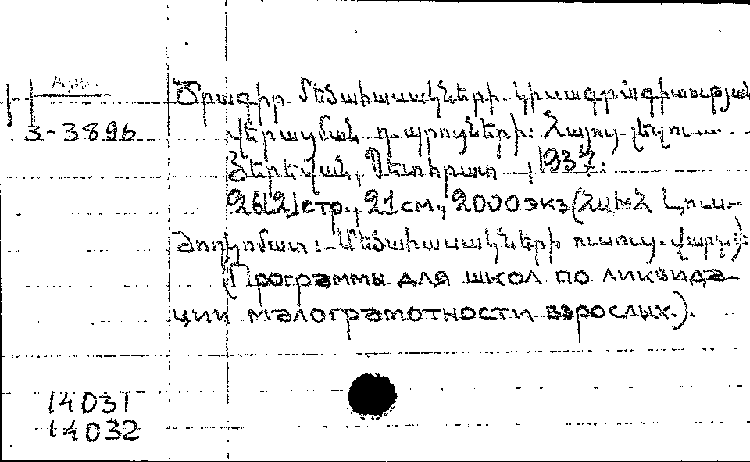 Арм.
Ծրագիր մեծահասակների կիսագրագիտության
3-3896
վերացման դպրոցների. Հայոց լեզու —
Յերեվան, Պետհրատ, 1937.
26[2] стр., 21 см, 2000 экз (ՀԽՍՀ Լուս-
ժողկոմատ: Մեծահասակների ուսուց. վարչ.):
(Программы для школ по ликвида-
ции малограмотности взрослых.).
14031
14032